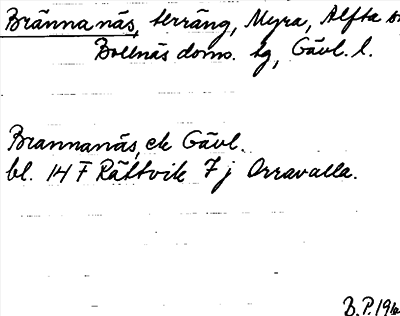 Bränna näs, terräng, Myra, Alfta
Bollnäs doms. tg, Gävl. l.
Brannanäs, ek Gävl.
bl. 14 F Rättvik 7 j Orravalla.
B.P. 19